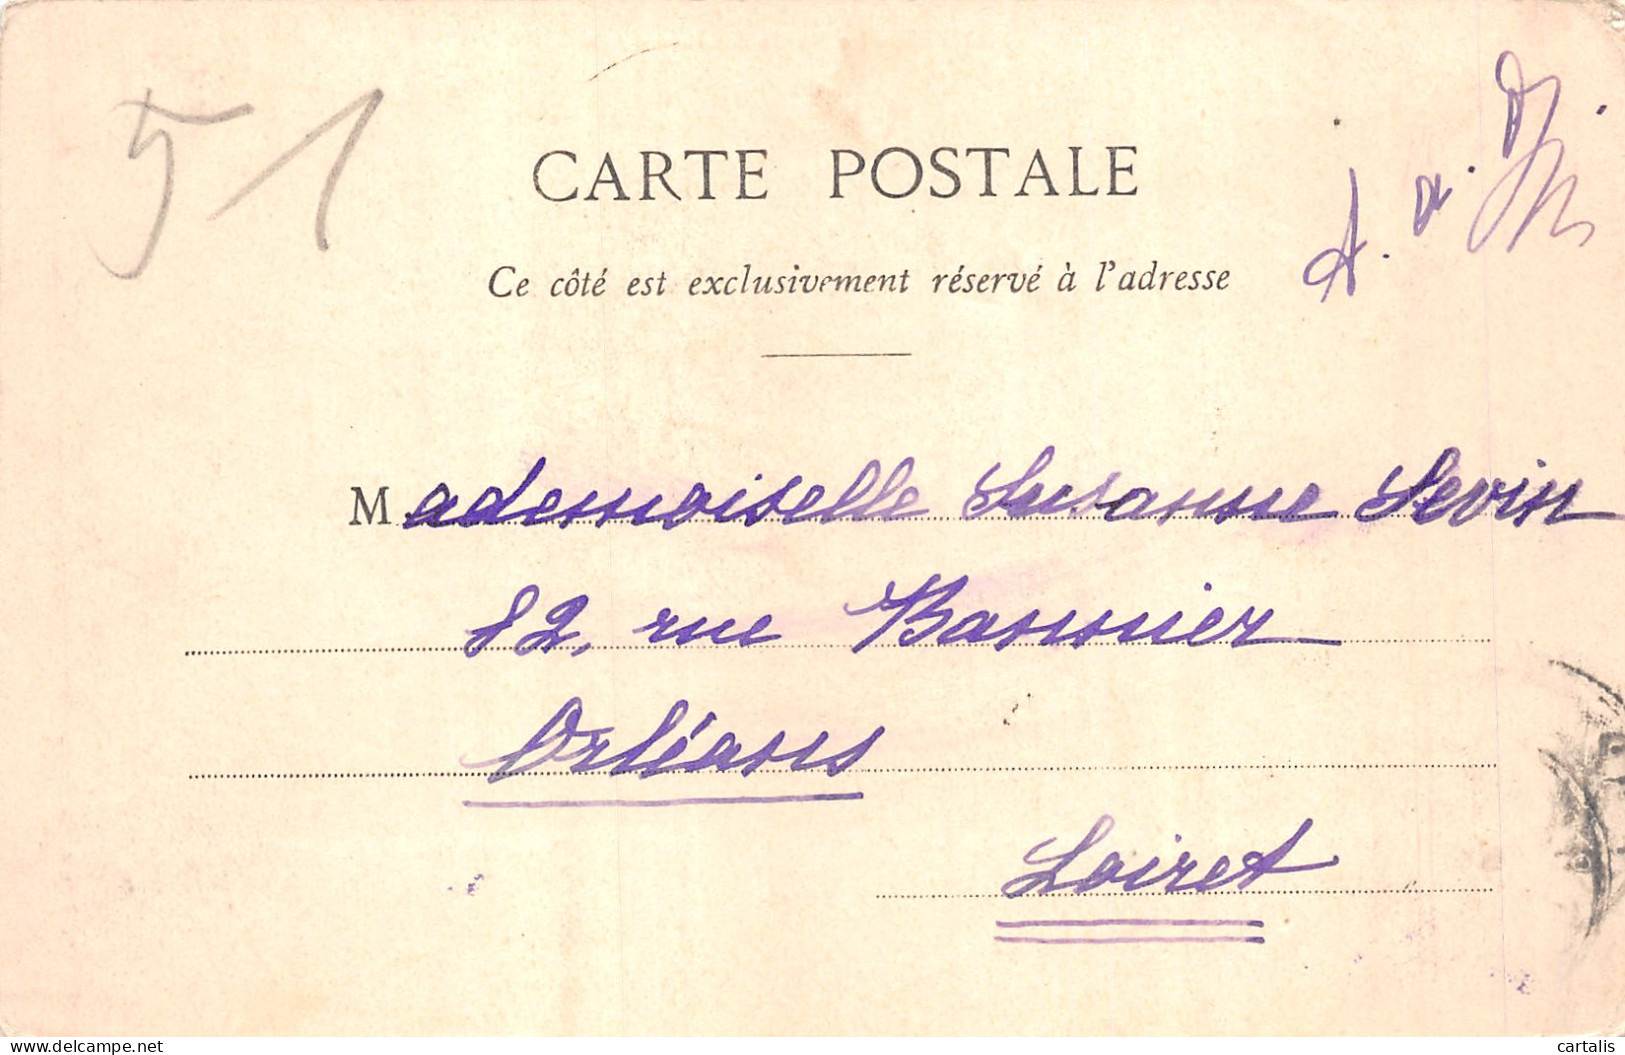 51
CARTE POSTALE
Ce côté est exclusivement réservé à l'adresse
Mademoiselle Susanne Sevin
82, rue Bannier
Orléans
Loiret
www.delcampe.net
cartalis